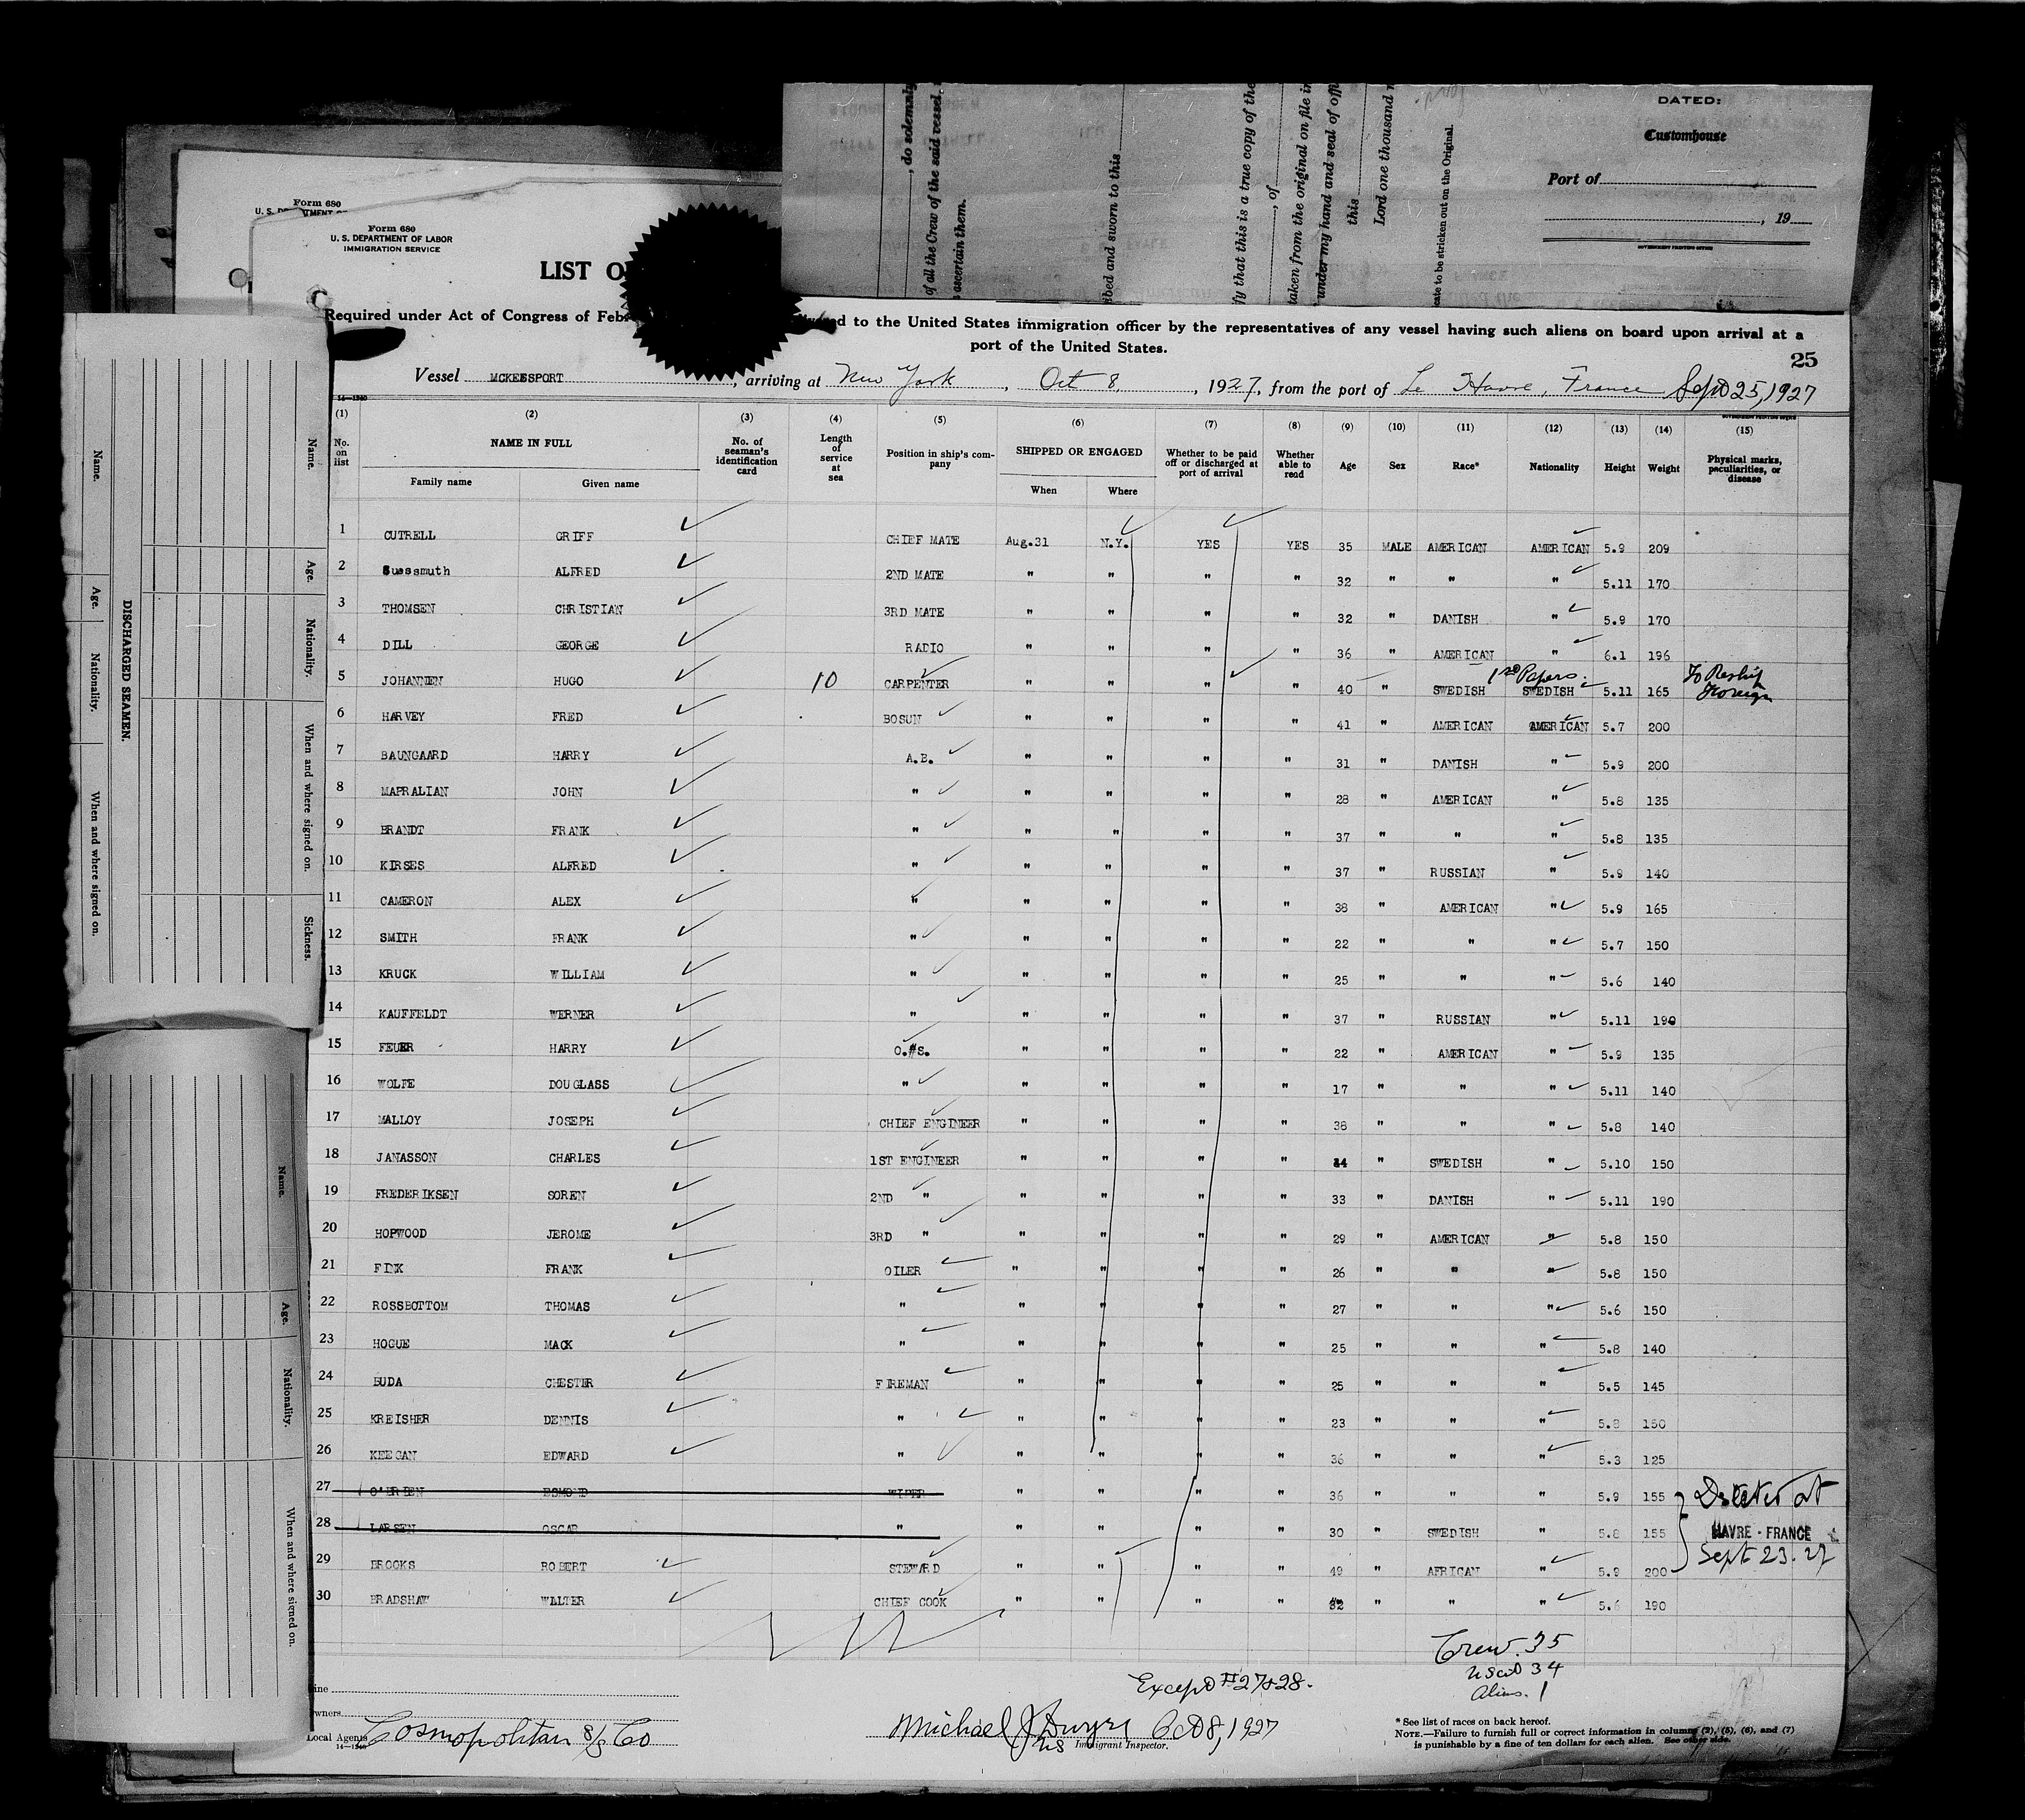 Form 680
Form 680
U. S. DEPARTMENT OF LABOR
IMMIGRATION SERVICE
LIST O
, do solemnly
of all the Crew of the said vessel.
ascertain them.
bed and sworn to this
fy that this is a true copy of the
, of
taken from the original on file in
under my hand and seal of offi
this
Lord one thousand
cate to be stricken out on the Original.
DATED:
Customhouse
Port of
, 19
GOVERNMENT PRINTING OFFICE
Required under Act of Congress of Feb to the United States immigration officer by the representatives of any vessel having such aliens on board upon arrival at a
port of the United States.
25
Vessel MCKEESPORT, arriving at New York, Oct 8, 1927, from the port of Le Havre, France Sept 25, 1927
14—1240
(1) (2) (3) (4) (5) (6) (7) (8) (9) (10) (11) (12) (13) (14) (15)
No. on list NAME IN FULL No. of seaman's identification card Length of service at sea Position in ship's company SHIPPED OR ENGAGED Whether to be paid off or discharged at port of arrival Whether able to read Age Sex Race* Nationality Height Weight Physical marks, peculiarities, or disease
Family name Given name When Where
1 CUTRELL GRIFF CHIEF MATE Aug.31 N.Y. YES YES 35 MALE AMERICAN AMERICAN 5.9 209
2 Suessmuth ALFRED 2ND MATE " " " " 32 " " " 5.11 170
3 THOMSEN CHRISTIAN 3RD MATE " " " " 32 " DANISH " 5.9 170
4 DILL GEORGE RADIO " " " " 36 " AMERICAN " 6.1 196
1st Papers.
5 JOHANNEN HUGO 10 CARPENTER " " " " 40 " SWEDISH SWEDISH 5.11 165 To Reship Foreign
6 HARVEY FRED BOSUN " " " " 41 " AMERICAN AMERICAN 5.7 200
7 BAUNGAARD HARRY A.B. " " " " 31 " DANISH " 5.9 200
8 MAPRALIAN JOHN " " " " " 28 " AMERICAN " 5.8 135
9 BRANDT FRANK " " " " " 37 " " " 5.8 135
10 KIRSES ALFRED " " " " " 37 " RUSSIAN " 5.9 140
11 CAMERON ALEX " " " " " 38 " AMERICAN " 5.9 165
12 SMITH FRANK " " " " " 22 " " " 5.7 150
13 KRUCK WILLIAM " " " " " 25 " " " 5.6 140
14 KAUFFELDT WERNER " " " " " 37 " RUSSIAN " 5.11 190
15 FEUER HARRY O.S. " " " " 22 " AMERICAN " 5.9 135
16 WOLFE DOUGLASS " " " " " 17 " " " 5.11 140
17 MALLOY JOSEPH CHIEF ENGINEER " " " " 38 " " " 5.8 140
18 JANASSON CHARLES 1ST ENGINEER " " " " " SWEDISH " 5.10 150
19 FREDERIKSEN SOREN 2ND " " " " " 33 " DANISH " 5.11 190
20 HOPWOOD JEROME 3RD " " " " " 29 " AMERICAN " 5.8 150
21 FINK FRANK OILER " " " " 26 " " " 5.8 150
22 ROSSBOTTOM THOMAS " " " " " 27 " " " 5.6 150
23 HOGUE MACK " " " " " 25 " " " 5.8 140
24 BUDA CHESTER FIREMAN " " " " 25 " " " 5.5 145
25 KREISHER DENNIS " " " " " 23 " " " 5.8 150
26 KEEGAN EDWARD " " " " " 36 " " " 5.3 125
27 O'BRIEN ESMOND WIPER " " " " 36 " " " 5.9 155 Deserted at
28 LARSEN OSCAR " " " " " 30 " SWEDISH " 5.8 155 HAVRE - FRANCE
Sept 23. 27
29 BROOKS ROBERT STEWARD " " " " 49 " AFRICAN " 5.9 200
30 BRADSHAW WALTER CHIEF COOK " " " " 32 " " " 5.6 190
Crew. 35
USCit 34
Alien. 1
Except #27+28.
Line
Owners
Local Agents Cosmopolitan S/S Co
14—1240
Michael J Dwyer Oct 8, 1927
Immigrant Inspector.
* See list of races on back hereof.
NOTE.—Failure to furnish full or correct information in columns (2), (5), (6), and (7)
is punishable by a fine of ten dollars for each alien. See other side.
DISCHARGED SEAMEN.
Name.
Age.
Nationality.
When and where signed on.
Name.
Age.
Nationality.
When and where signed on.
Sickness.
Name.
Age.
Nationality.
When and where signed on.